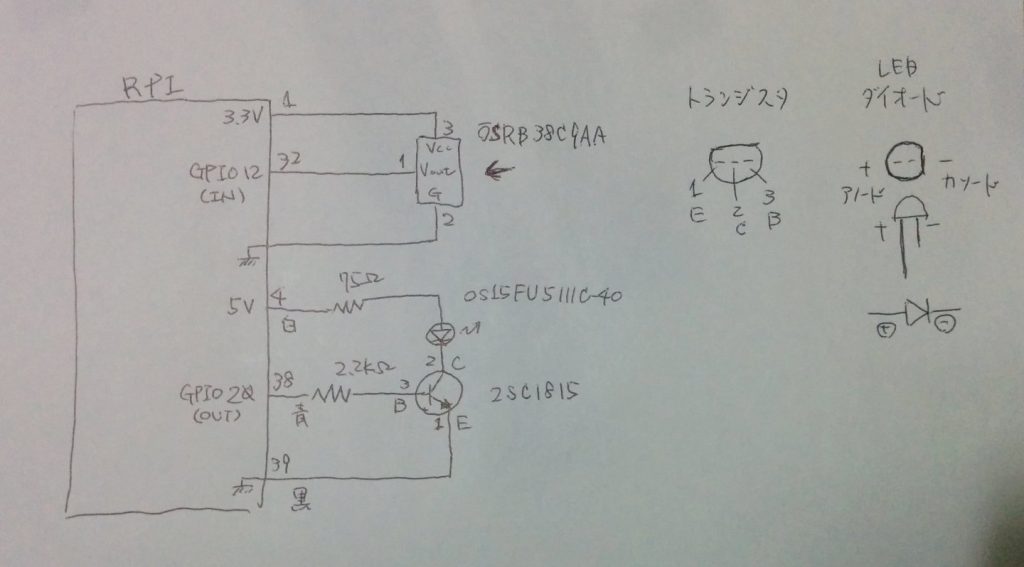 RPI
3.3V
1
3
OSRB38C9AA
Vcc
GPIO12
(IN)
32
1
Vout
G
2
75Ω
5V
4
白
OS15FU5111C-40
2.2kΩ
2
C
GPIO20
(OUT)
38
青
3
B
2SC1815
1
E
39
黒
トランジスタ
1
2
3
E
C
B
LED
ダイオード
+
-
アノード
カソード
+
-
+
-